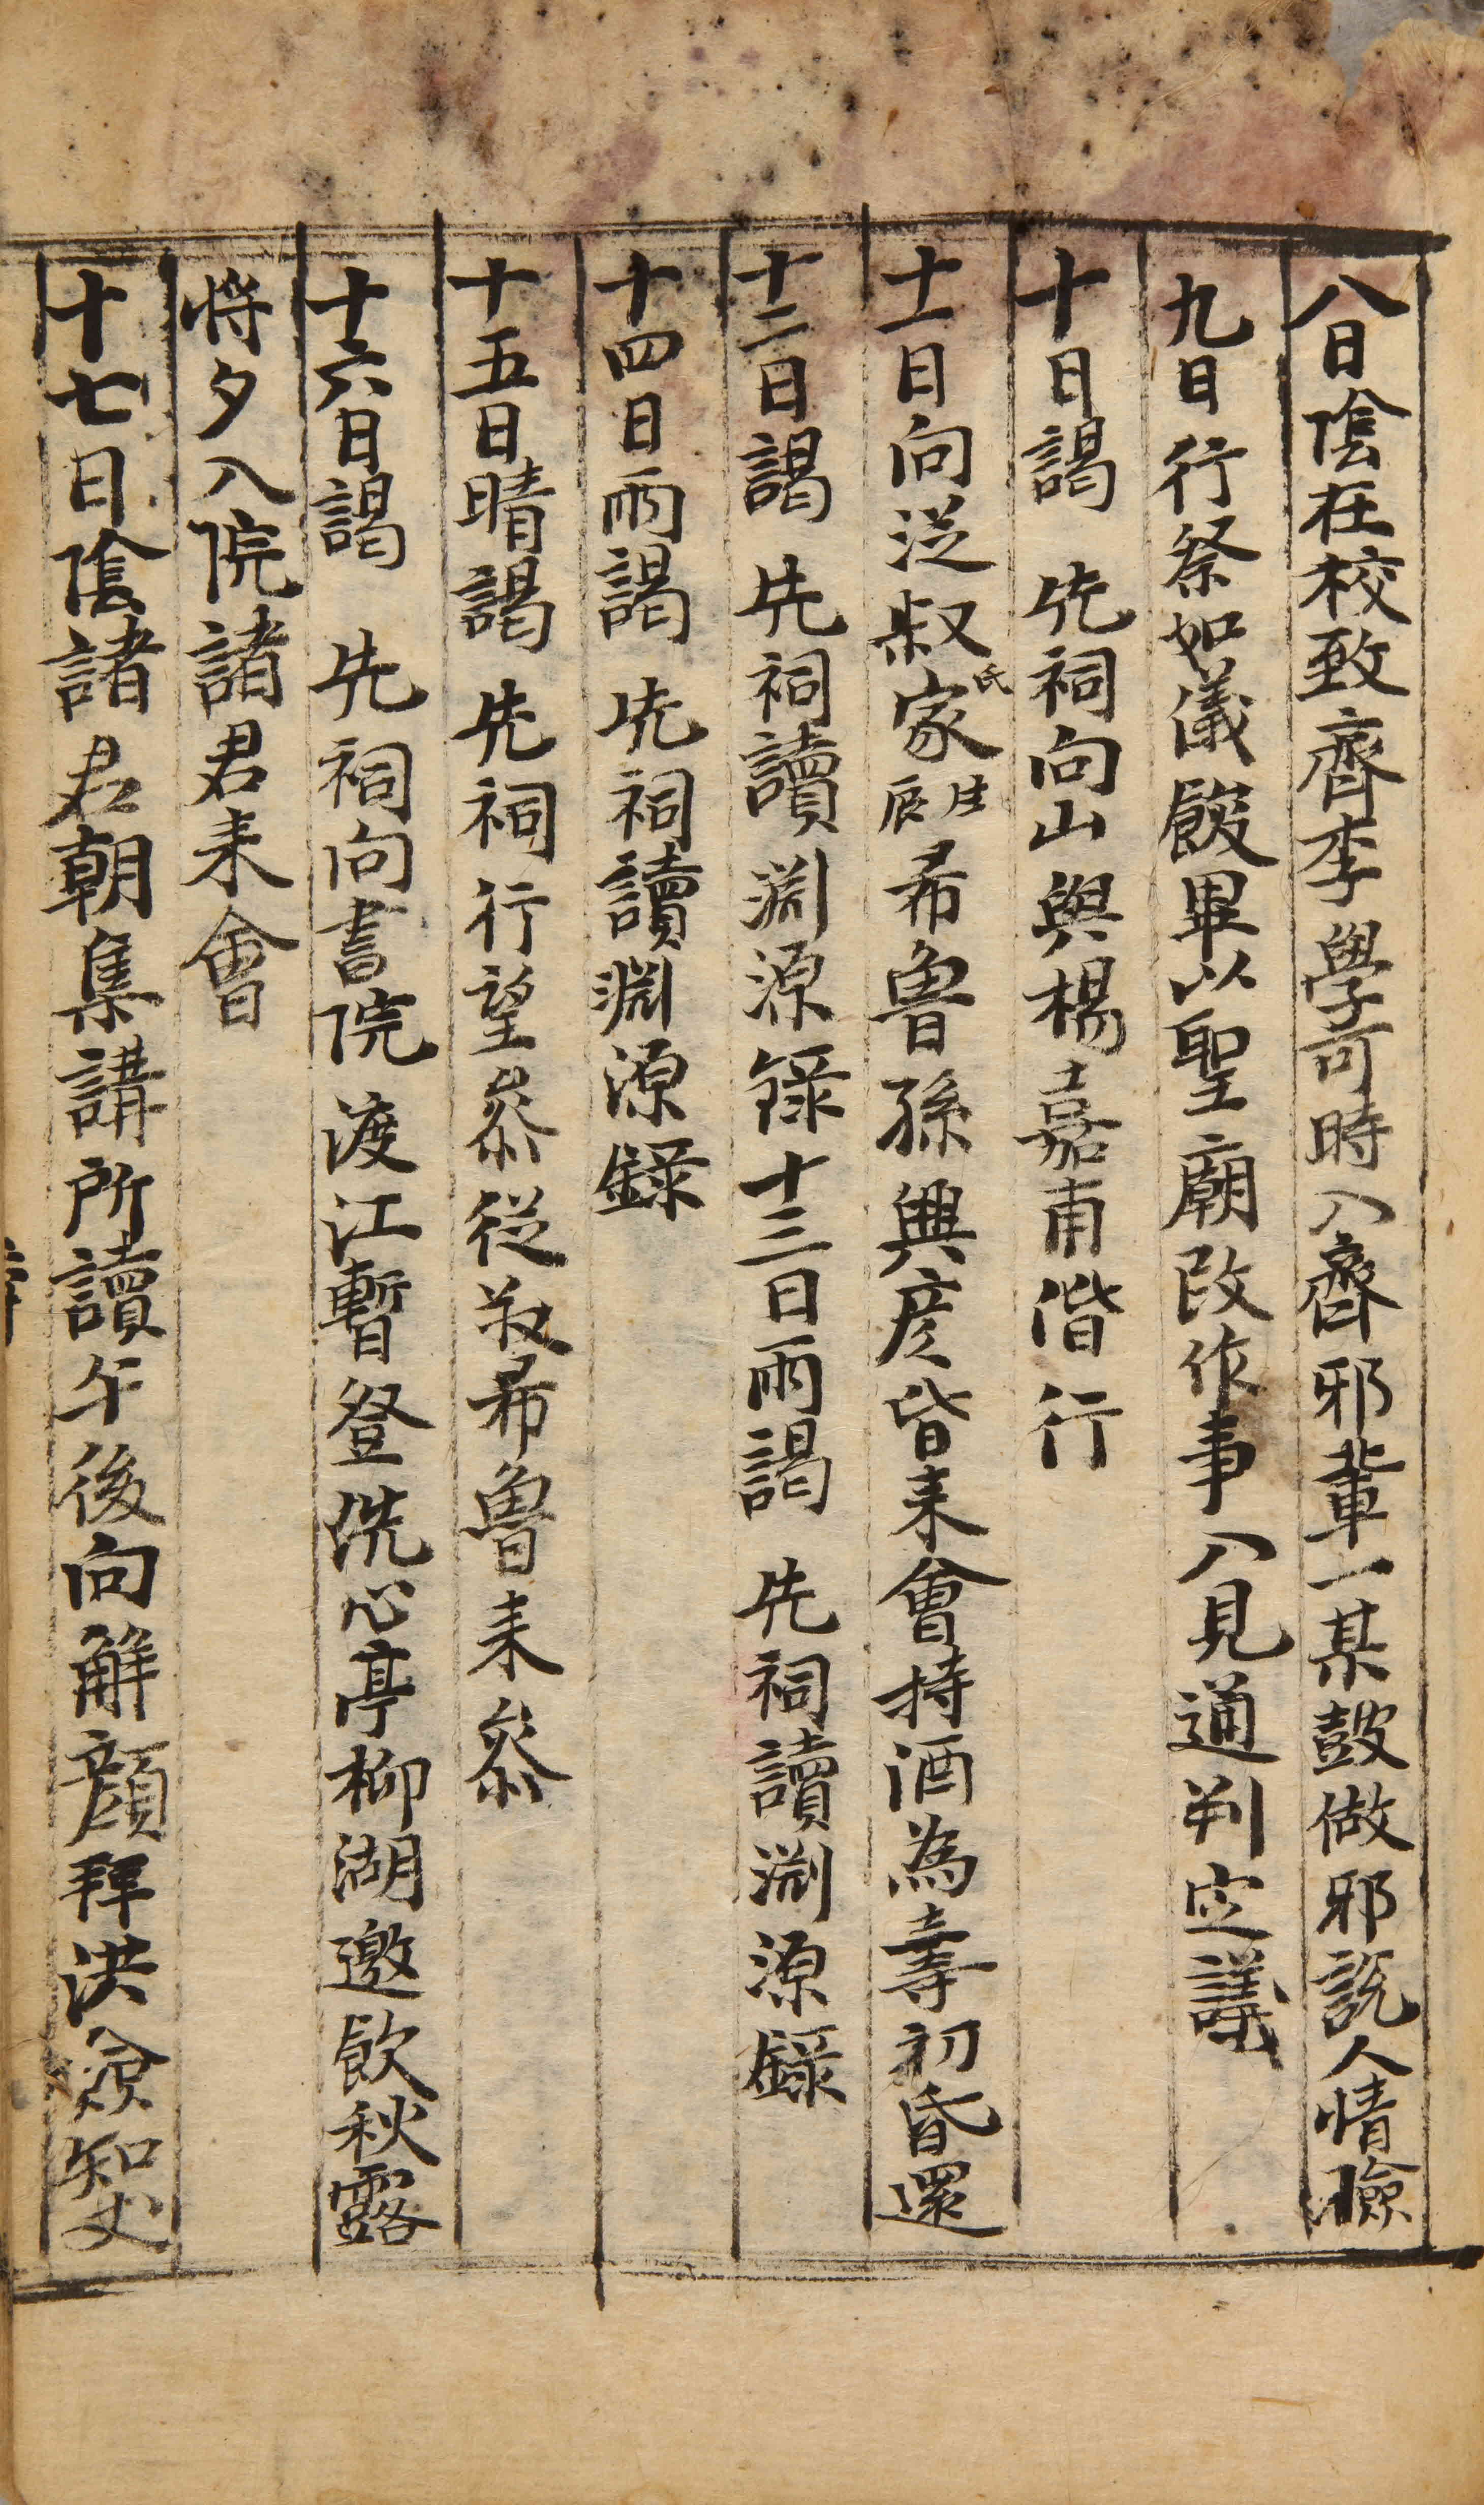 八日陰在校致齊李學可時入齊邪輩一某鼓做邪說人情險
九日行祭如儀餕畢以聖廟改作事入見通判定議
十日謁 先祠向山與楊嘉甫偕行
十一日向從叔氏家生辰希魯孫興彦皆来會持酒為壽初昏還
十二日謁 先祠讀淵源錄十三日雨謁 先祠讀淵源錄
十四日雨謁 先祠讀淵源錄
十五日晴謁 先祠行望參從叔希魯来參
十六日謁 先祠向書院渡江暫登洗心亭柳湖邀飲秋露
將夕入院諸君来會
十七日陰諸君朝集講所讀午後向解顔拜洪僉知丈